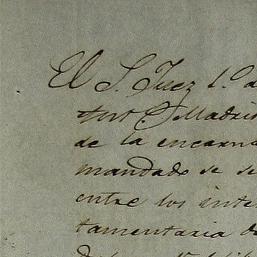 El S. Juez 1.º
Madrid
de la encarna
mandado se se
entre los inte
tamentaria d